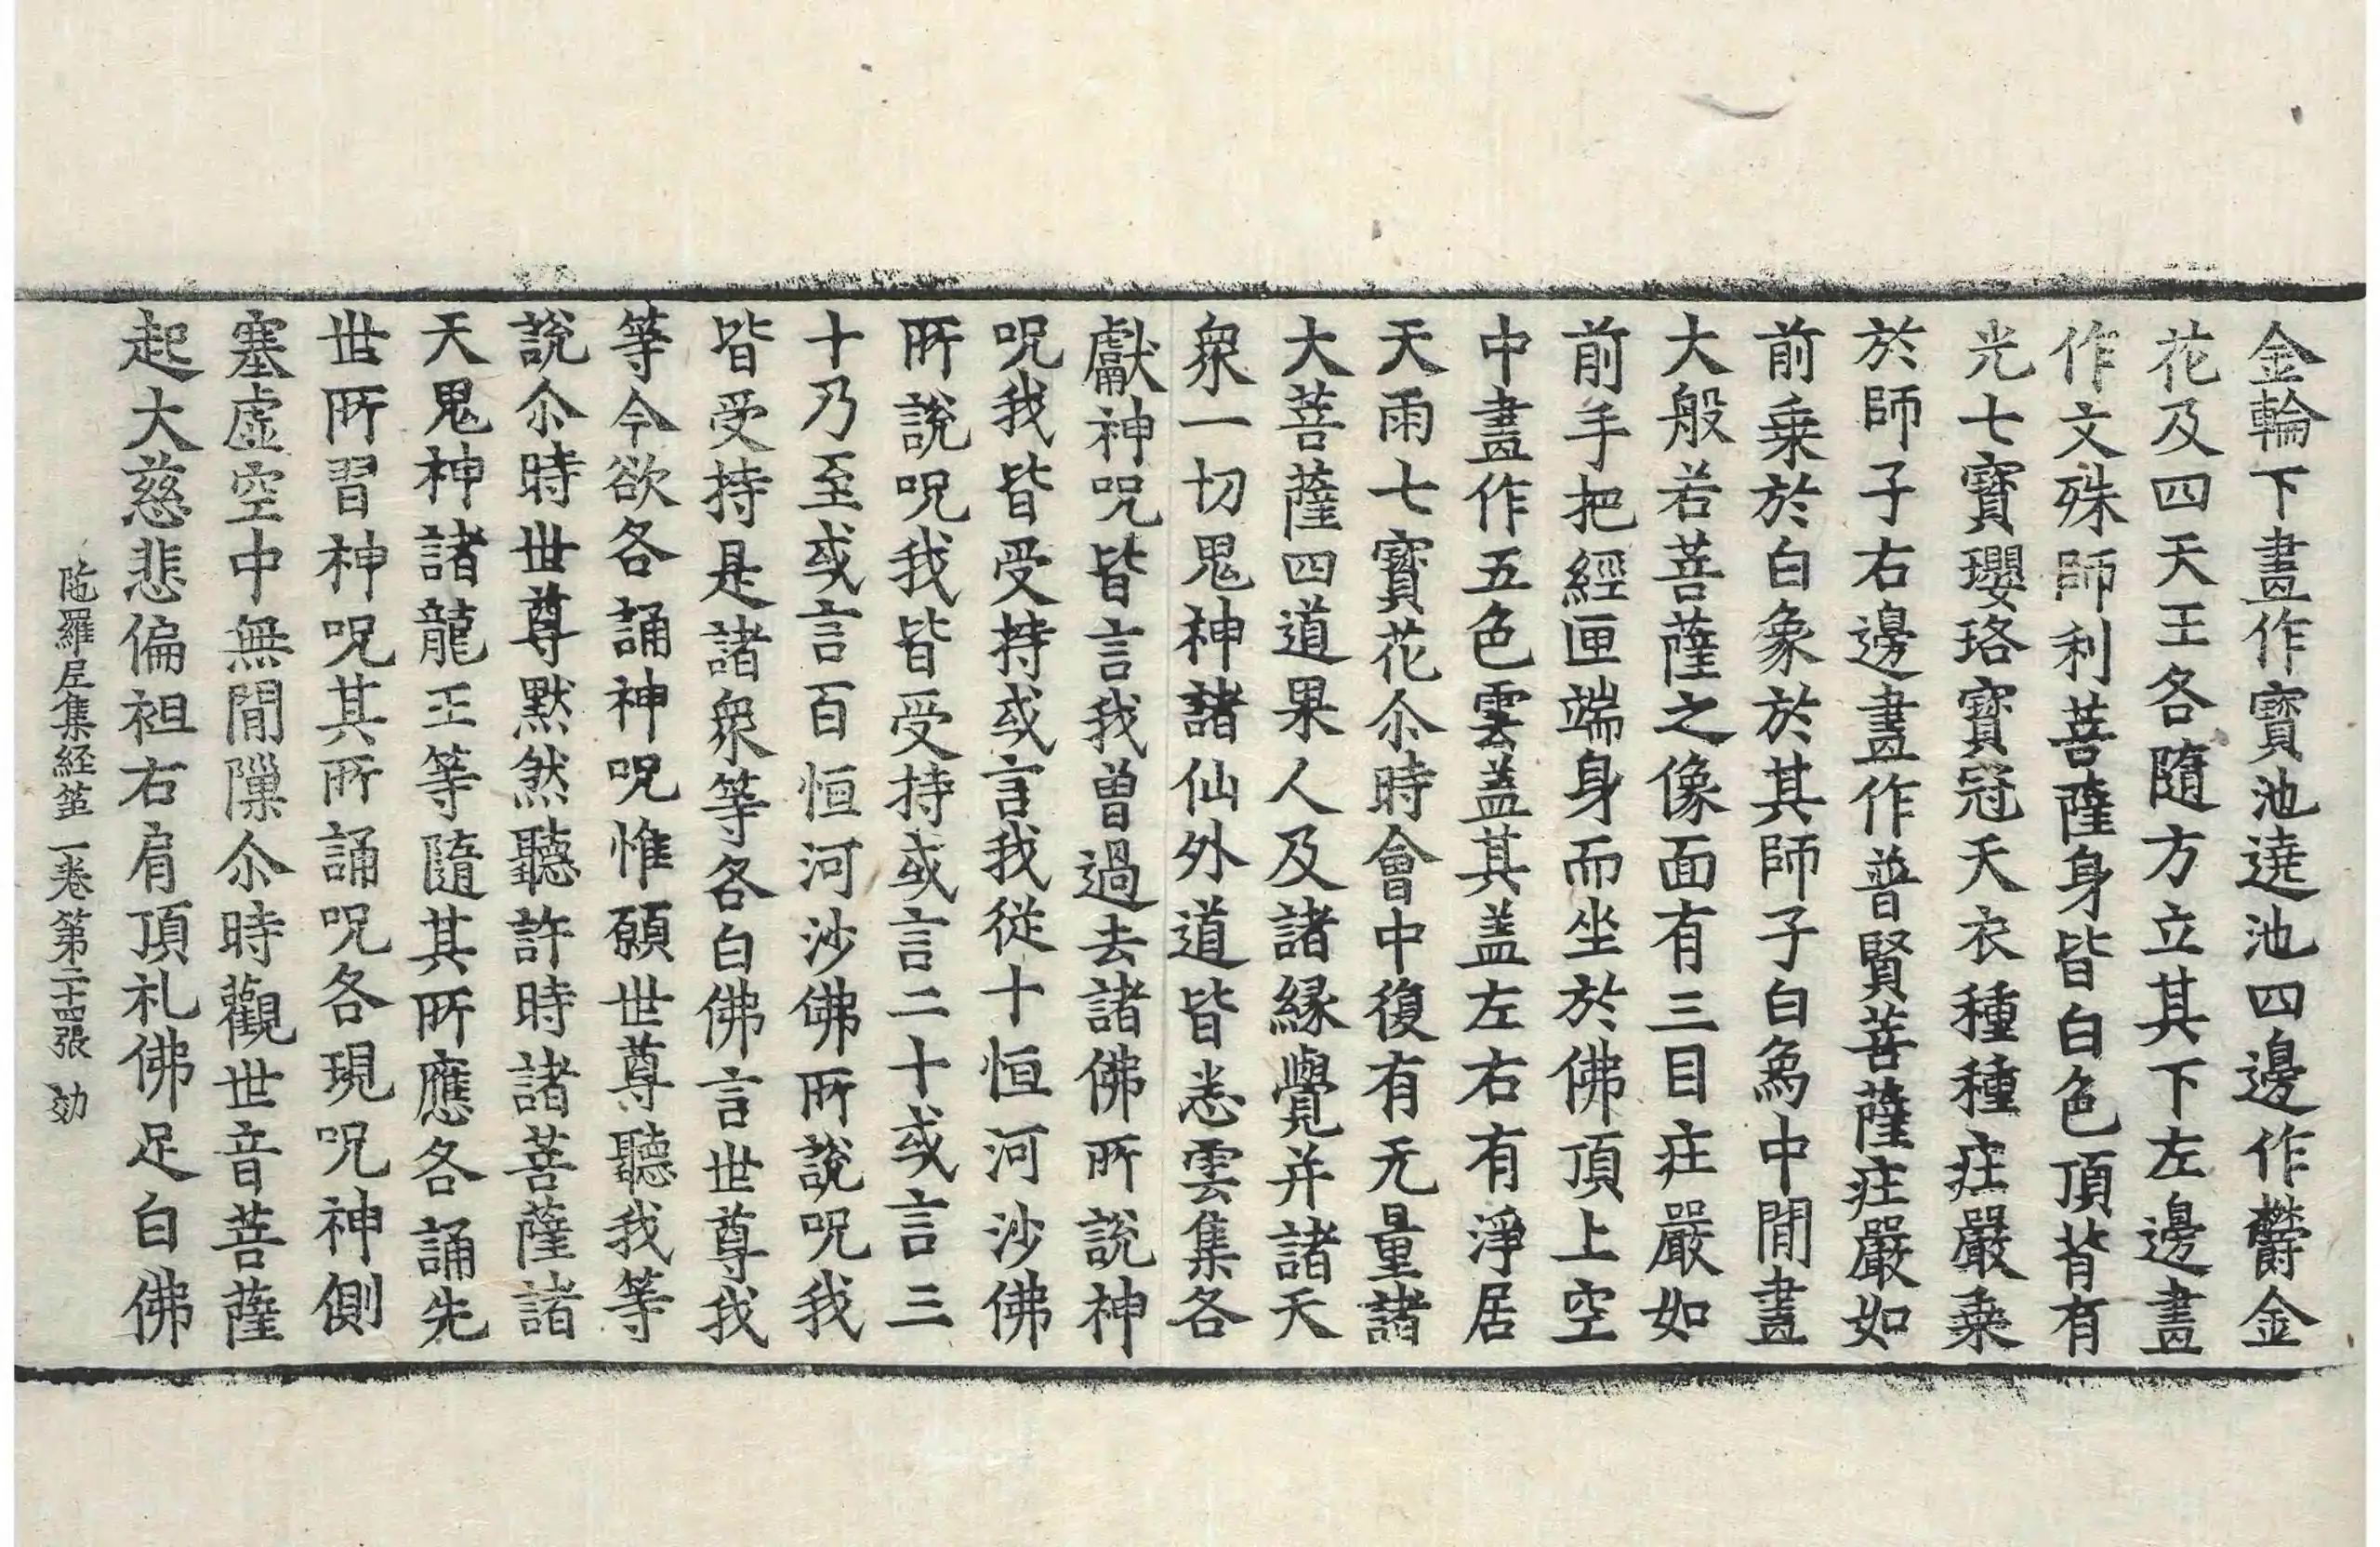 金輪下畫作寶池遶池四邊作欝金
花及四天王各隨方立其下左邊畫
作文殊師利菩薩身皆白色頂背有
光七寶瓔珞寶冠天衣種種庄嚴乗
於師子右邊畫作普賢菩薩庄嚴如
前乗於白象於其師子白象中閒畫
大般若菩薩之像面有三目庄嚴如
前手把經匣端身而坐於佛頂上空
中畫作五色雲盖其盖左右有淨居
天雨七寶花尒時會中復有无量諸
大菩薩四道果人及諸縁覺并諸天
衆一切鬼神諸仙外道皆悉雲集各
獻神呪皆言我曽過去諸佛所說神
呪我皆受持或言我從十恒河沙佛
所說呪我皆受持或言二十或言三
十乃至或言百恒河沙佛所說呪我
皆受持是諸衆等各白佛言世尊我
等今欲各誦神呪惟願世尊聽我等
說尒時世尊默然聽許時諸菩薩諸
天鬼神諸龍王等隨其所應各誦先
世所習神呪其所誦呪各現呪神側
塞虛空中無閒隟尒時觀世音菩薩
起大慈悲偏袒右肩頂礼佛足白佛
陁羅尼集経苐一卷第二十四張 効